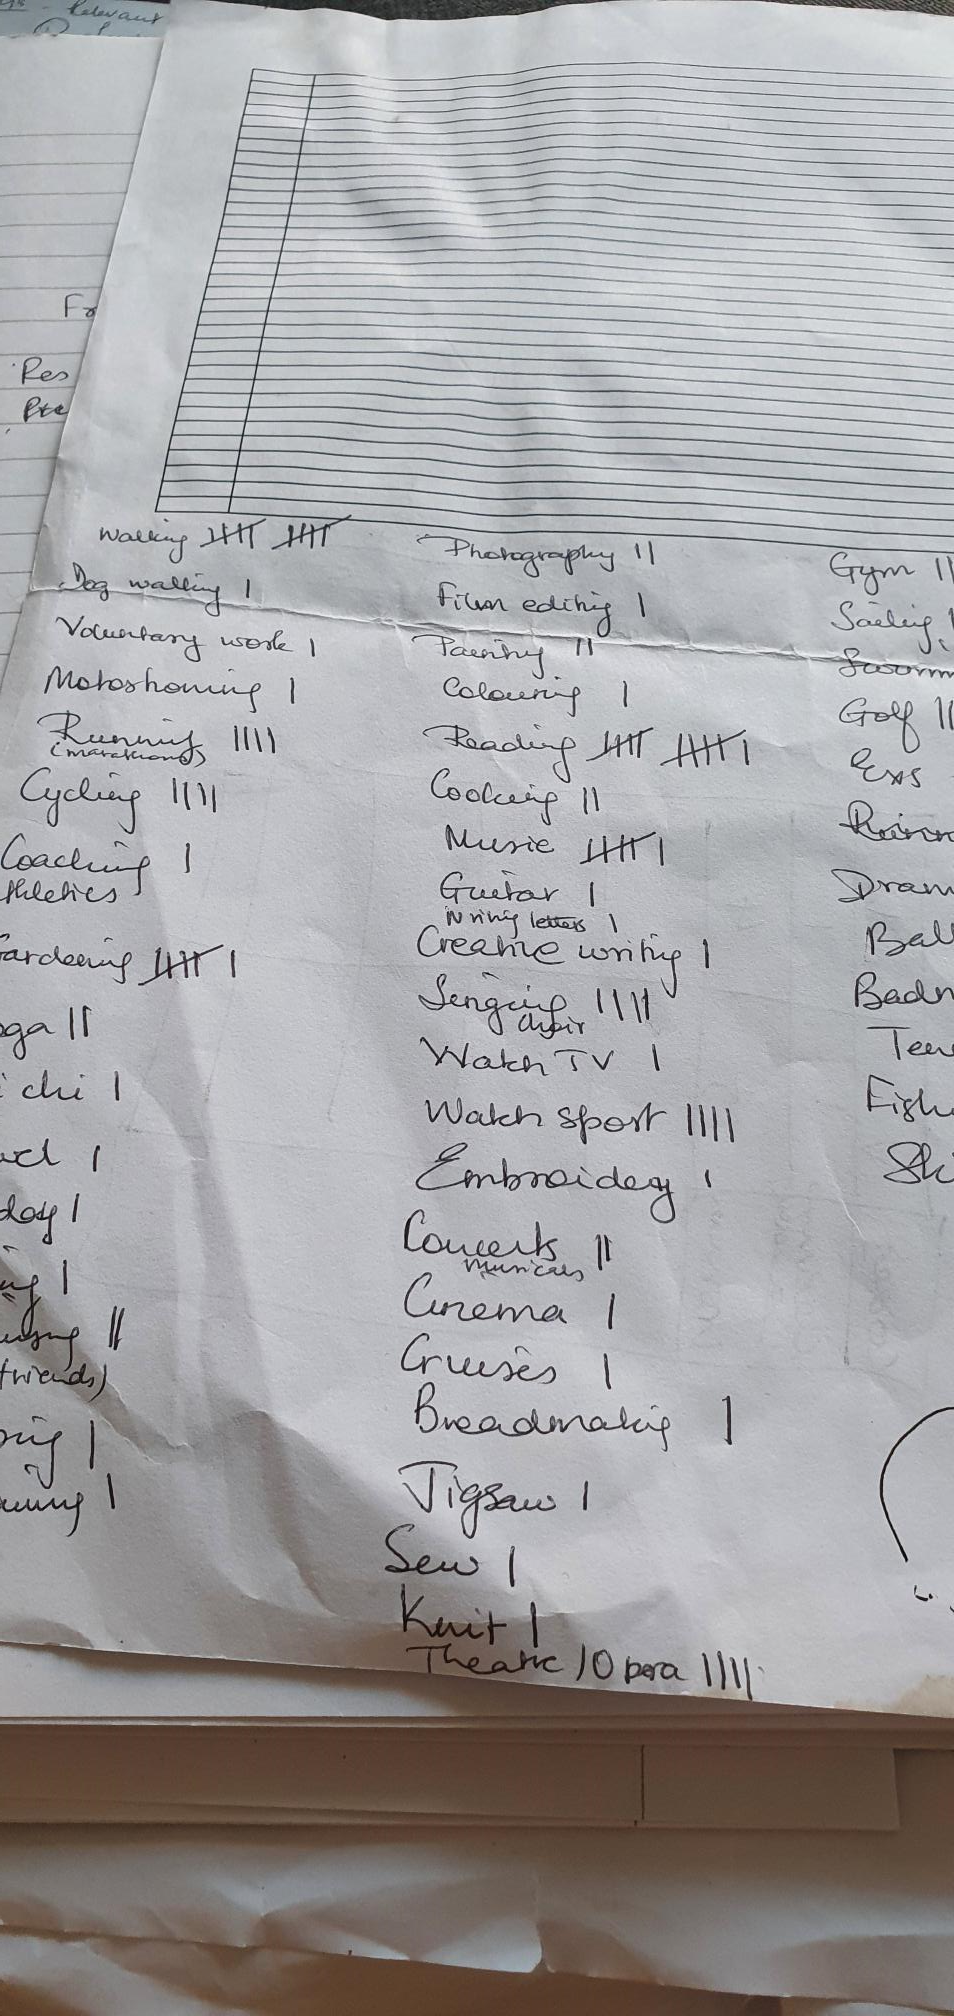 Relevant
Fr
Res
Walking 卌 卌
Dog walking |
Voluntary work |
Motorhoming |
Running ||||
(marathons)
Cycling ||||
Coaching |
thletics
ardening 卌 |
oga ||
chi |
|
day |
ng |
||
friends)
ing |
|
Photography ||
Film editing |
Painting ||
Colouring |
Reading 卌 卌 |
Cooking ||
Music 卌 |
Guitar |
Writing letters |
Creative writing |
Singing ||||
choir
Watch TV |
Watch sport ||||
Embroidery |
Concerts ||
musicals
Cinema |
Cruises |
Breadmaking |
Jigsaw |
Sew |
Knit |
Theatre / Opera ||||
Gym ||
Sailing |
Golf ||
Exs
Dram
Ball
Badm
Ten
Fish
Ski